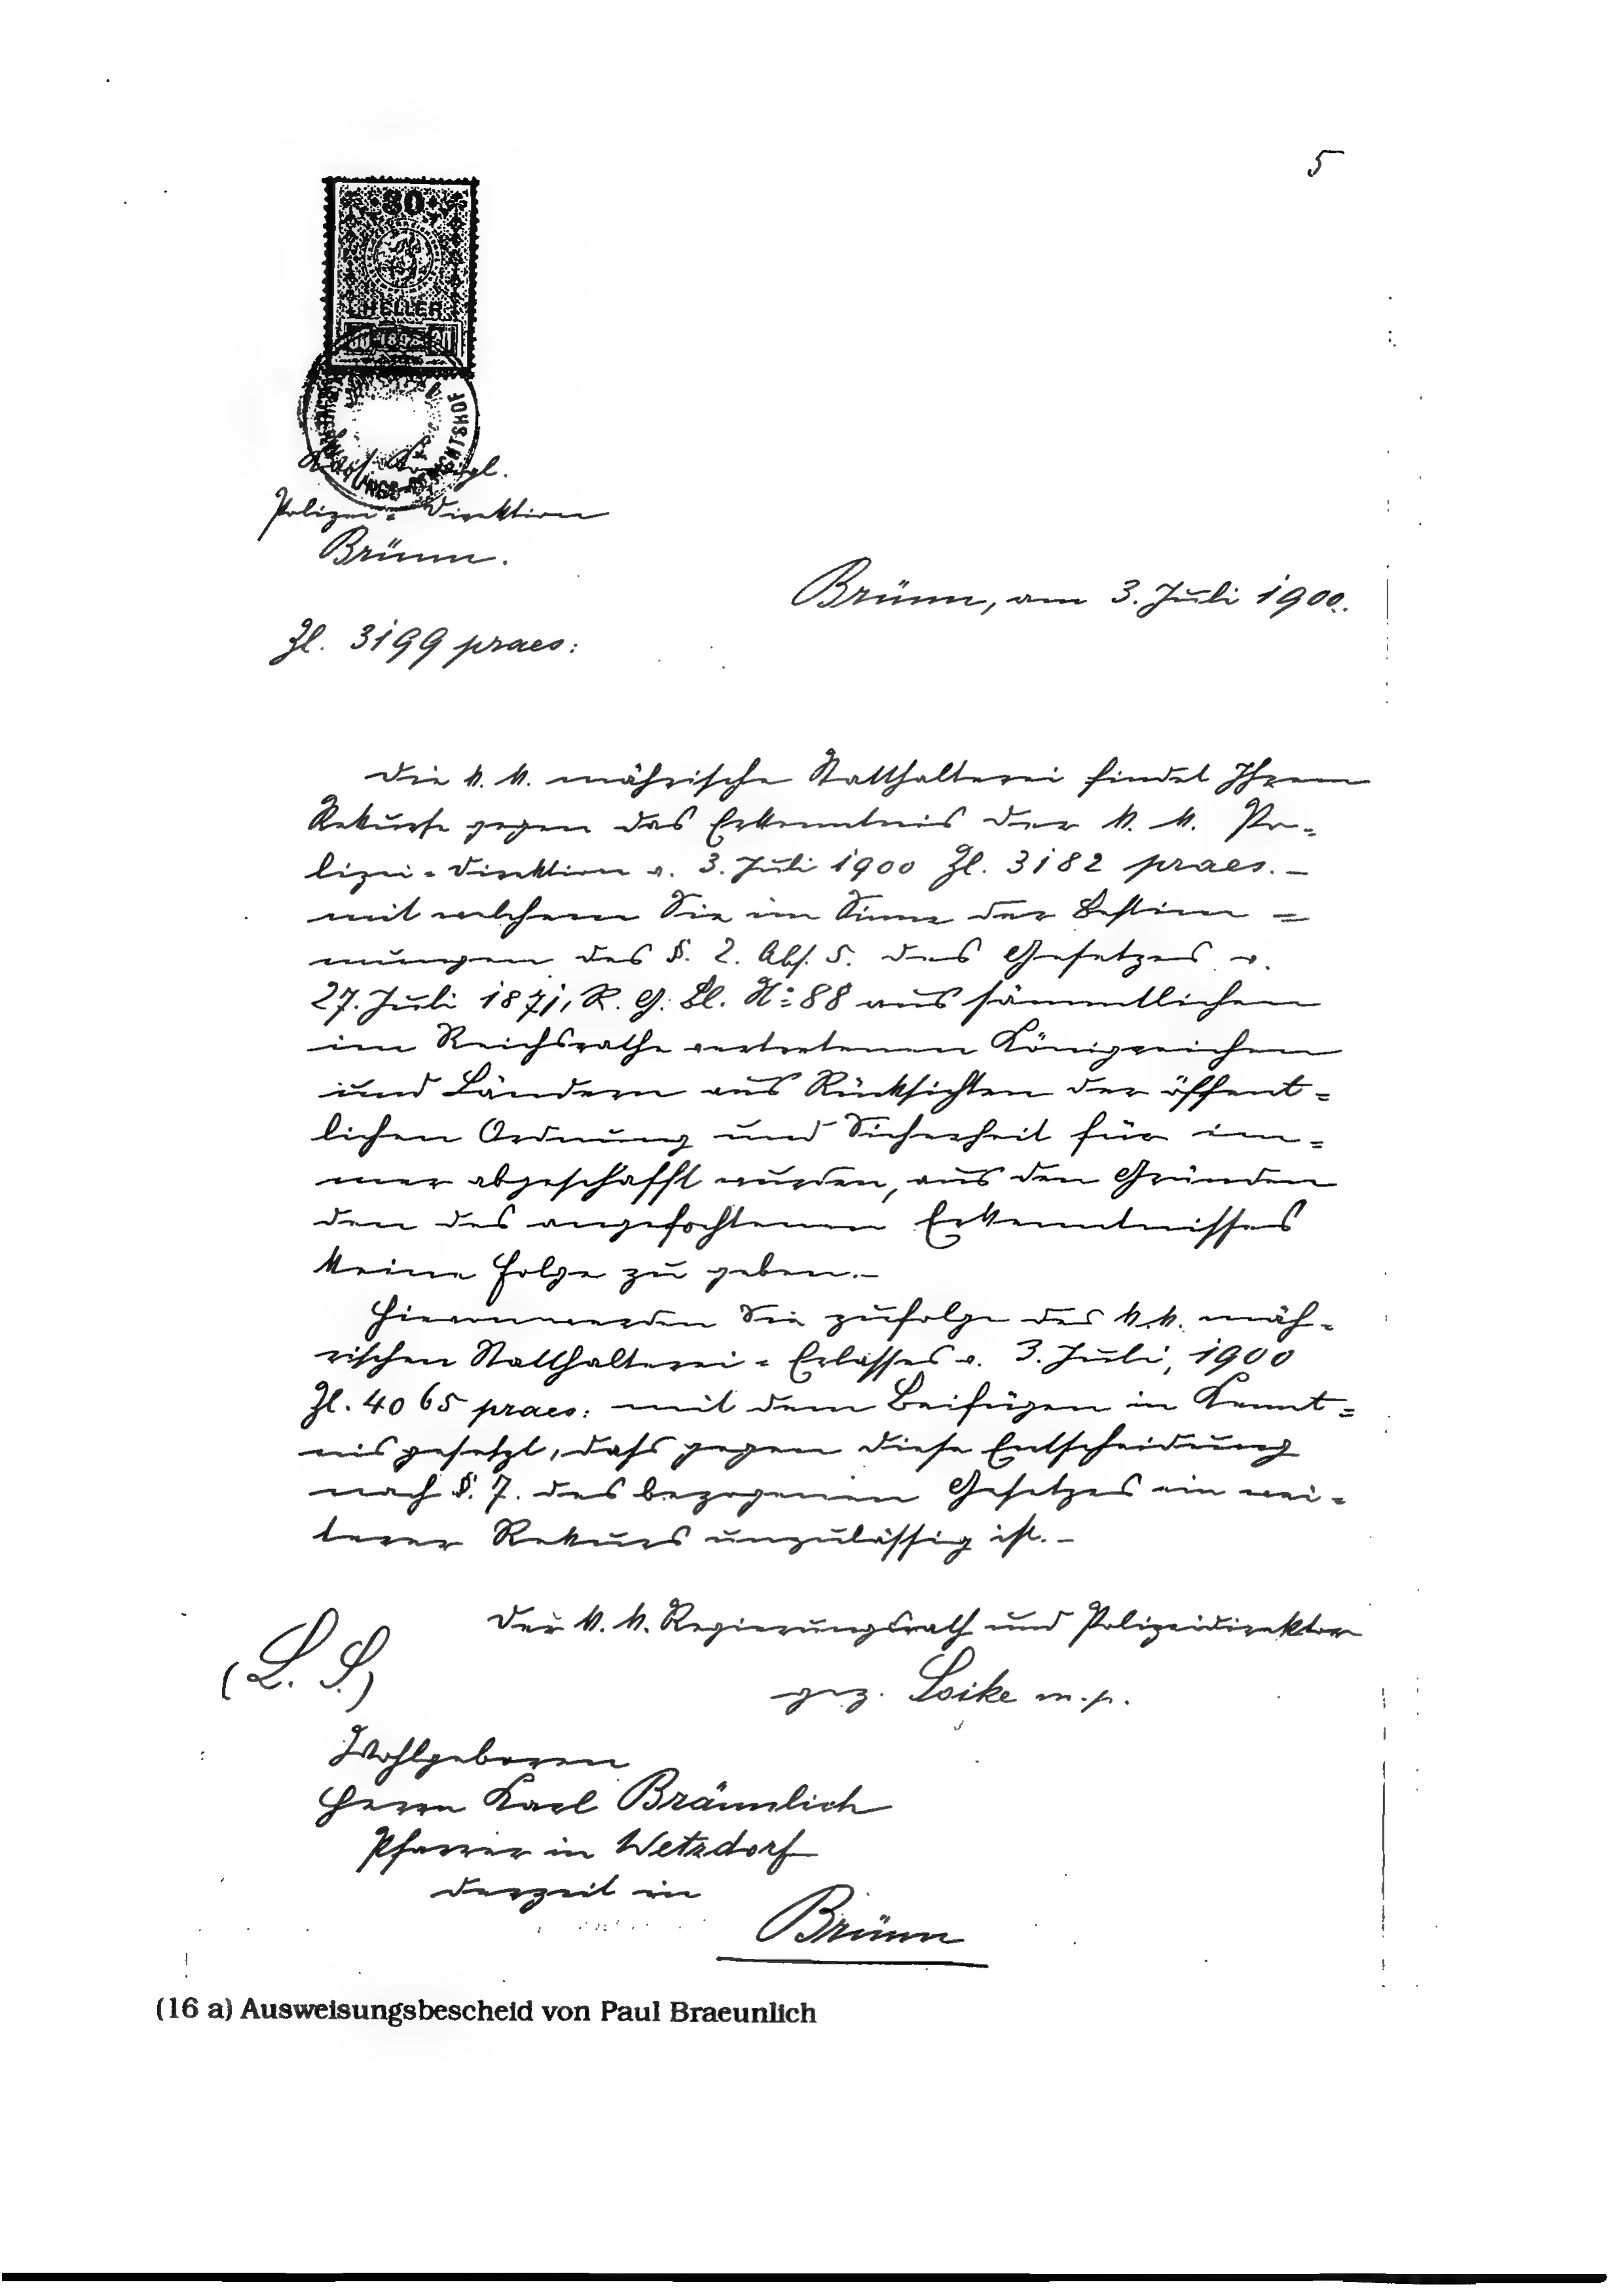 5
80
HELLER
1898
Polizei= Direktion
Brünn.
Brünn, am 3. Juli 1900.
Zl. 3199 praes:
Die k. k. mährische Statthalterei findet Ihrem
Rekurse gegen das Erkenntnis der k. k. Po=
lizei= Direktion v. 3. Juli 1900 Zl. 3182 praes. –
mit welchem Sie im Sinne der Bestim =
mungen des §. 2. Abs. 5. des Gesetzes v.
27. Juli 1871, R. G. Bl. No: 88 aus sämmtlichen
im Reichsrathe vertretenen Königreichen
und Ländern aus Rücksichten der öffent =
lichen Ordnung und Sicherheit für im =
mer abgeschafft wurden, aus den Gründen
den des angefochtenen Erkenntnisses
keine Folge zu geben. –
Hievon werden Sie zufolge des k. k. mäh =
rischen Statthalterei = Erlasses v. 3. Juli, 1900
Zl. 4065 praes: mit dem Beifügen in Kennt =
nis gesetzt, dass gegen diese Entscheidung
nach §. 7. des bezogenen Gesetzes ein wei =
terer Rekurs unzulässig ist. –
Der k. k. Regierungsrath und Polizeidirektor
(L. S.)
gez. Soike m. p.
Wohlgeboren
Herrn Karl Bräunlich
Pfarrer in Wetzdorf
derzeit in
Brünn
(16 a) Ausweisungsbescheid von Paul Braeunlich